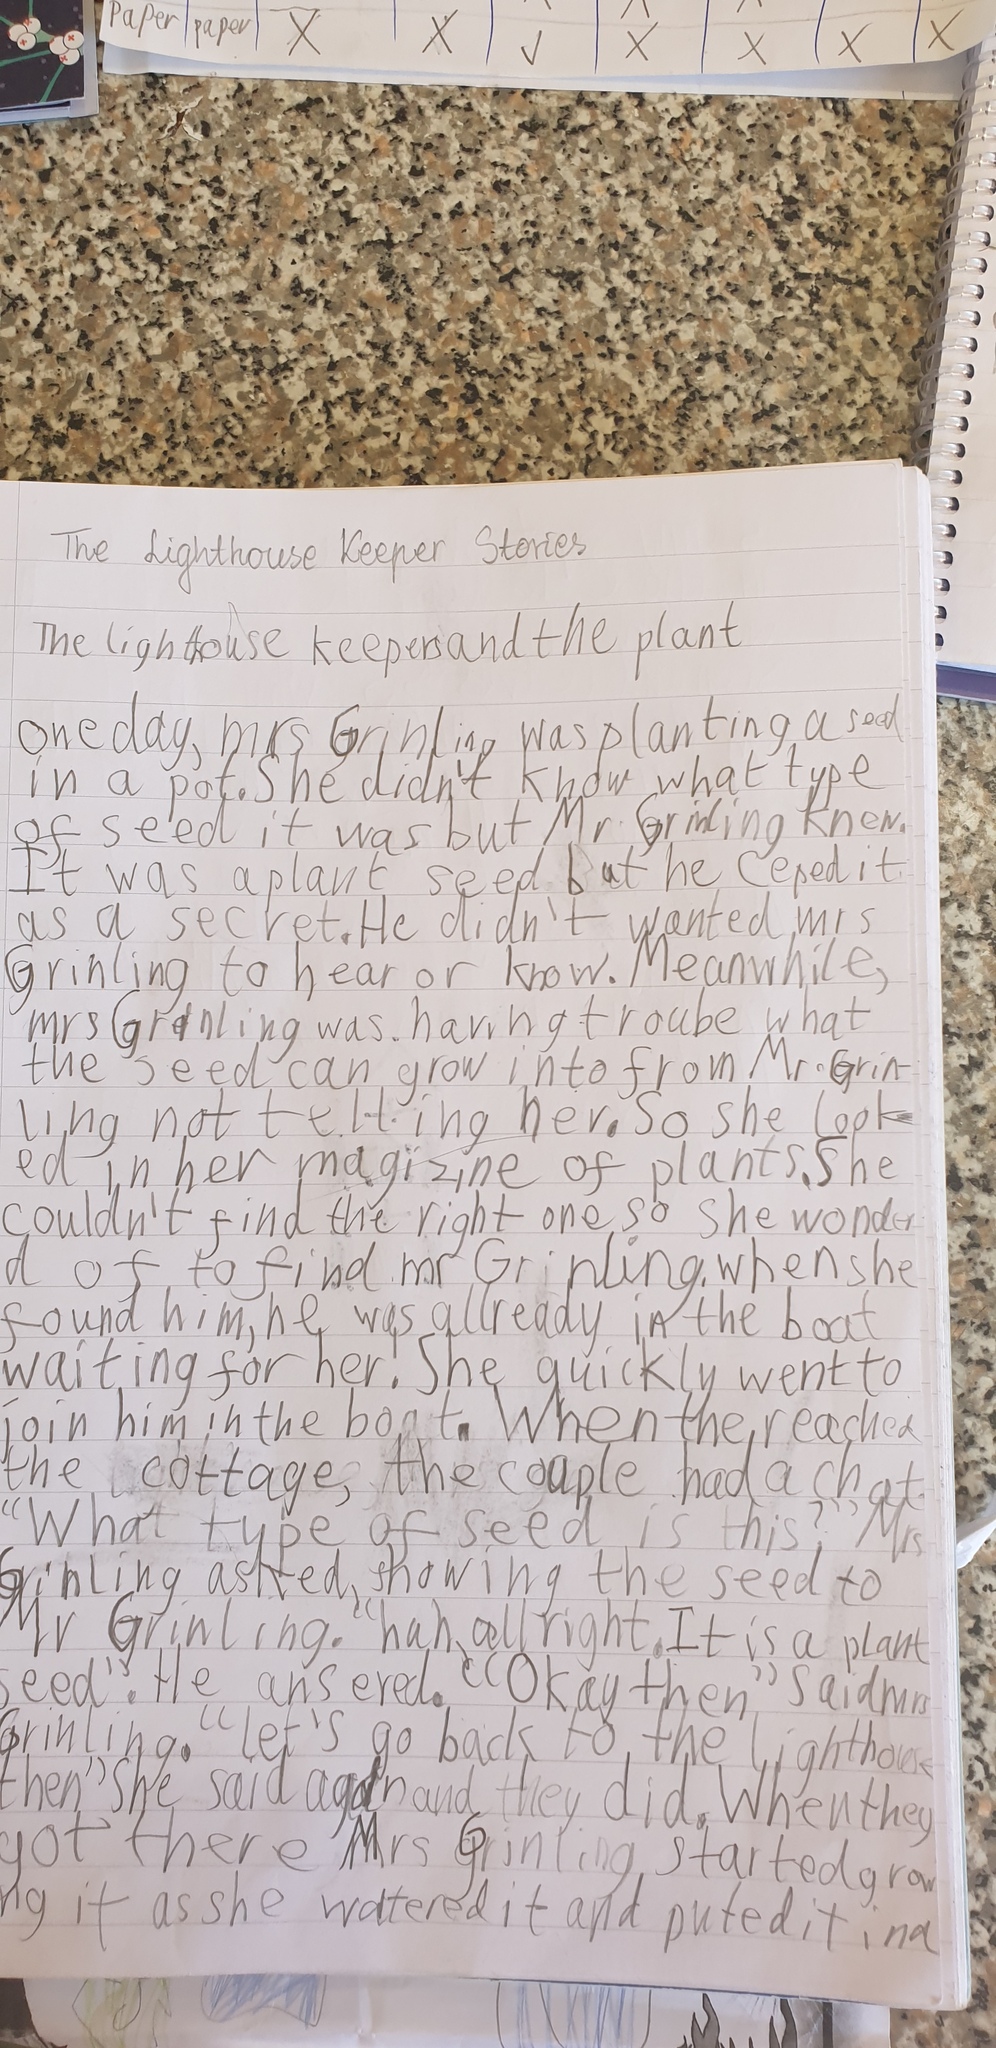 Paper paper X X ✓ X X X X
The Lighthouse Keeper Stories
The lighthouse keepers and the plant
one day, mrs Grinling was planting a seed
in a pot. She didn't know what type
of seed it was but Mr. Grinling knew.
It was a plant seed but he ceped it
as a secret. He didn't wanted mrs
Grinling to hear or know. Meanwhile,
mrs Grinling was having troube what
the seed can grow into from Mr. Grin-
ling not telling her. So she look-
ed in her magizine of plants. She
couldn't find the right one so she wonder
d of to find mr Grinling. when she
found him, he was allready in the boat
waiting for her. She quickly went to
join him in the boat. When they reached
the cottage, the couple had a chat.
"What type of seed is this?" Mrs
Grinling asked, showing the seed to
Mr Grinling. "huh, allright. It is a plant
seed". He ansered. "Okay then" Said mrs
Grinling. "let's go back to the lighthouse
then" She said again and they did. When they
got there Mrs Grinling started grow
ng it as she watered it and puted it in a